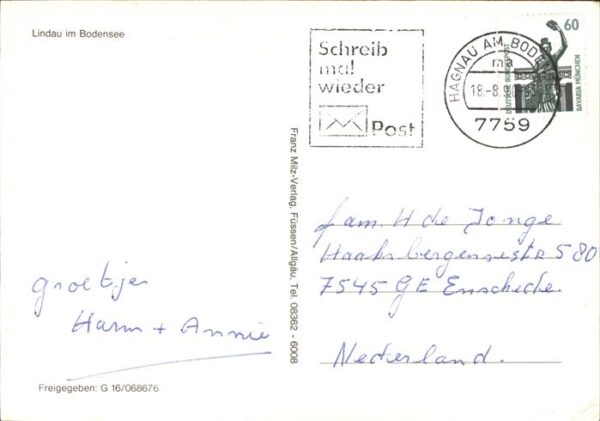 Lindau im Bodensee
Schreib
mal
wieder
Post
HAGNAU AM BODEN
ma
18.-8.
7759
60
DEUTSCHE BUNDESPOST
BAVARIA MÜNCHEN
Franz Milz-Verlag, Füssen/Allgäu, Tel. 08362 - 6008
fam. H de Jonge
Haaksbergersestr 580
7545 GE Enschede.
Nederland.
groetjes
Harm + Annie
Freigegeben: G 16/068676